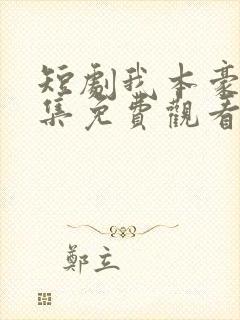 短劇我本豪
集免費觀看
鄭立